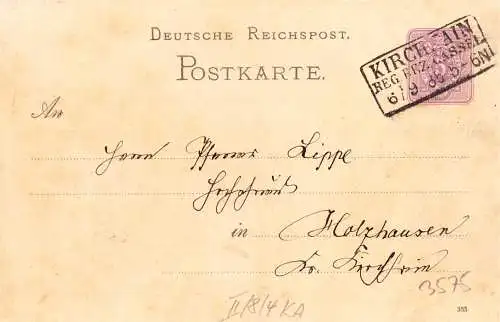 DEUTSCHE REICHSPOST.
POSTKARTE.
KIRCHHAIN
REG. BEZ. CASSEL
6/9 88 5-6N
An
Herrn Pfarrer Lippe
Hochehrwürd
in Holzhausen
Kr. Kirchhain
3575
II/8/4 KA